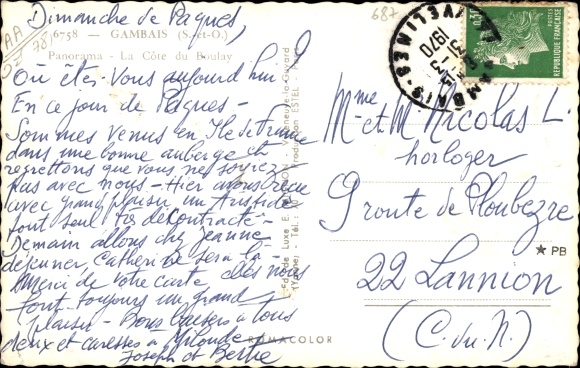 Dimanche de Pâques,
6758 — GAMBAIS (S.-et-O.)
Panorama - La Côte du Boulay
Où êtes-vous aujourd'hui
En ce jour de Pâques -
Sommes venus en Ile de France
dans une bonne auberge et
regrettons que vous ne soyez
pas avec nous - Hier avons reçu
avec grand plaisir un Aristide
tout seul très décontracté -
Demain allons chez Jeanne
déjeuner, Catherine sera là -
Merci de votre carte elles nous
font toujours un grand
plaisir - Bons baisers à tous
deux et caresses à
Joseph et Berthe
687
GAMBAIS YVELINES
1970
RÉPUBLIQUE FRANÇAISE
POSTES
Mme et M. Nicolas L.
horloger
9 route de Ploubezre
22 Lannion
(C. du N.)
★ PB
ROMACOLOR